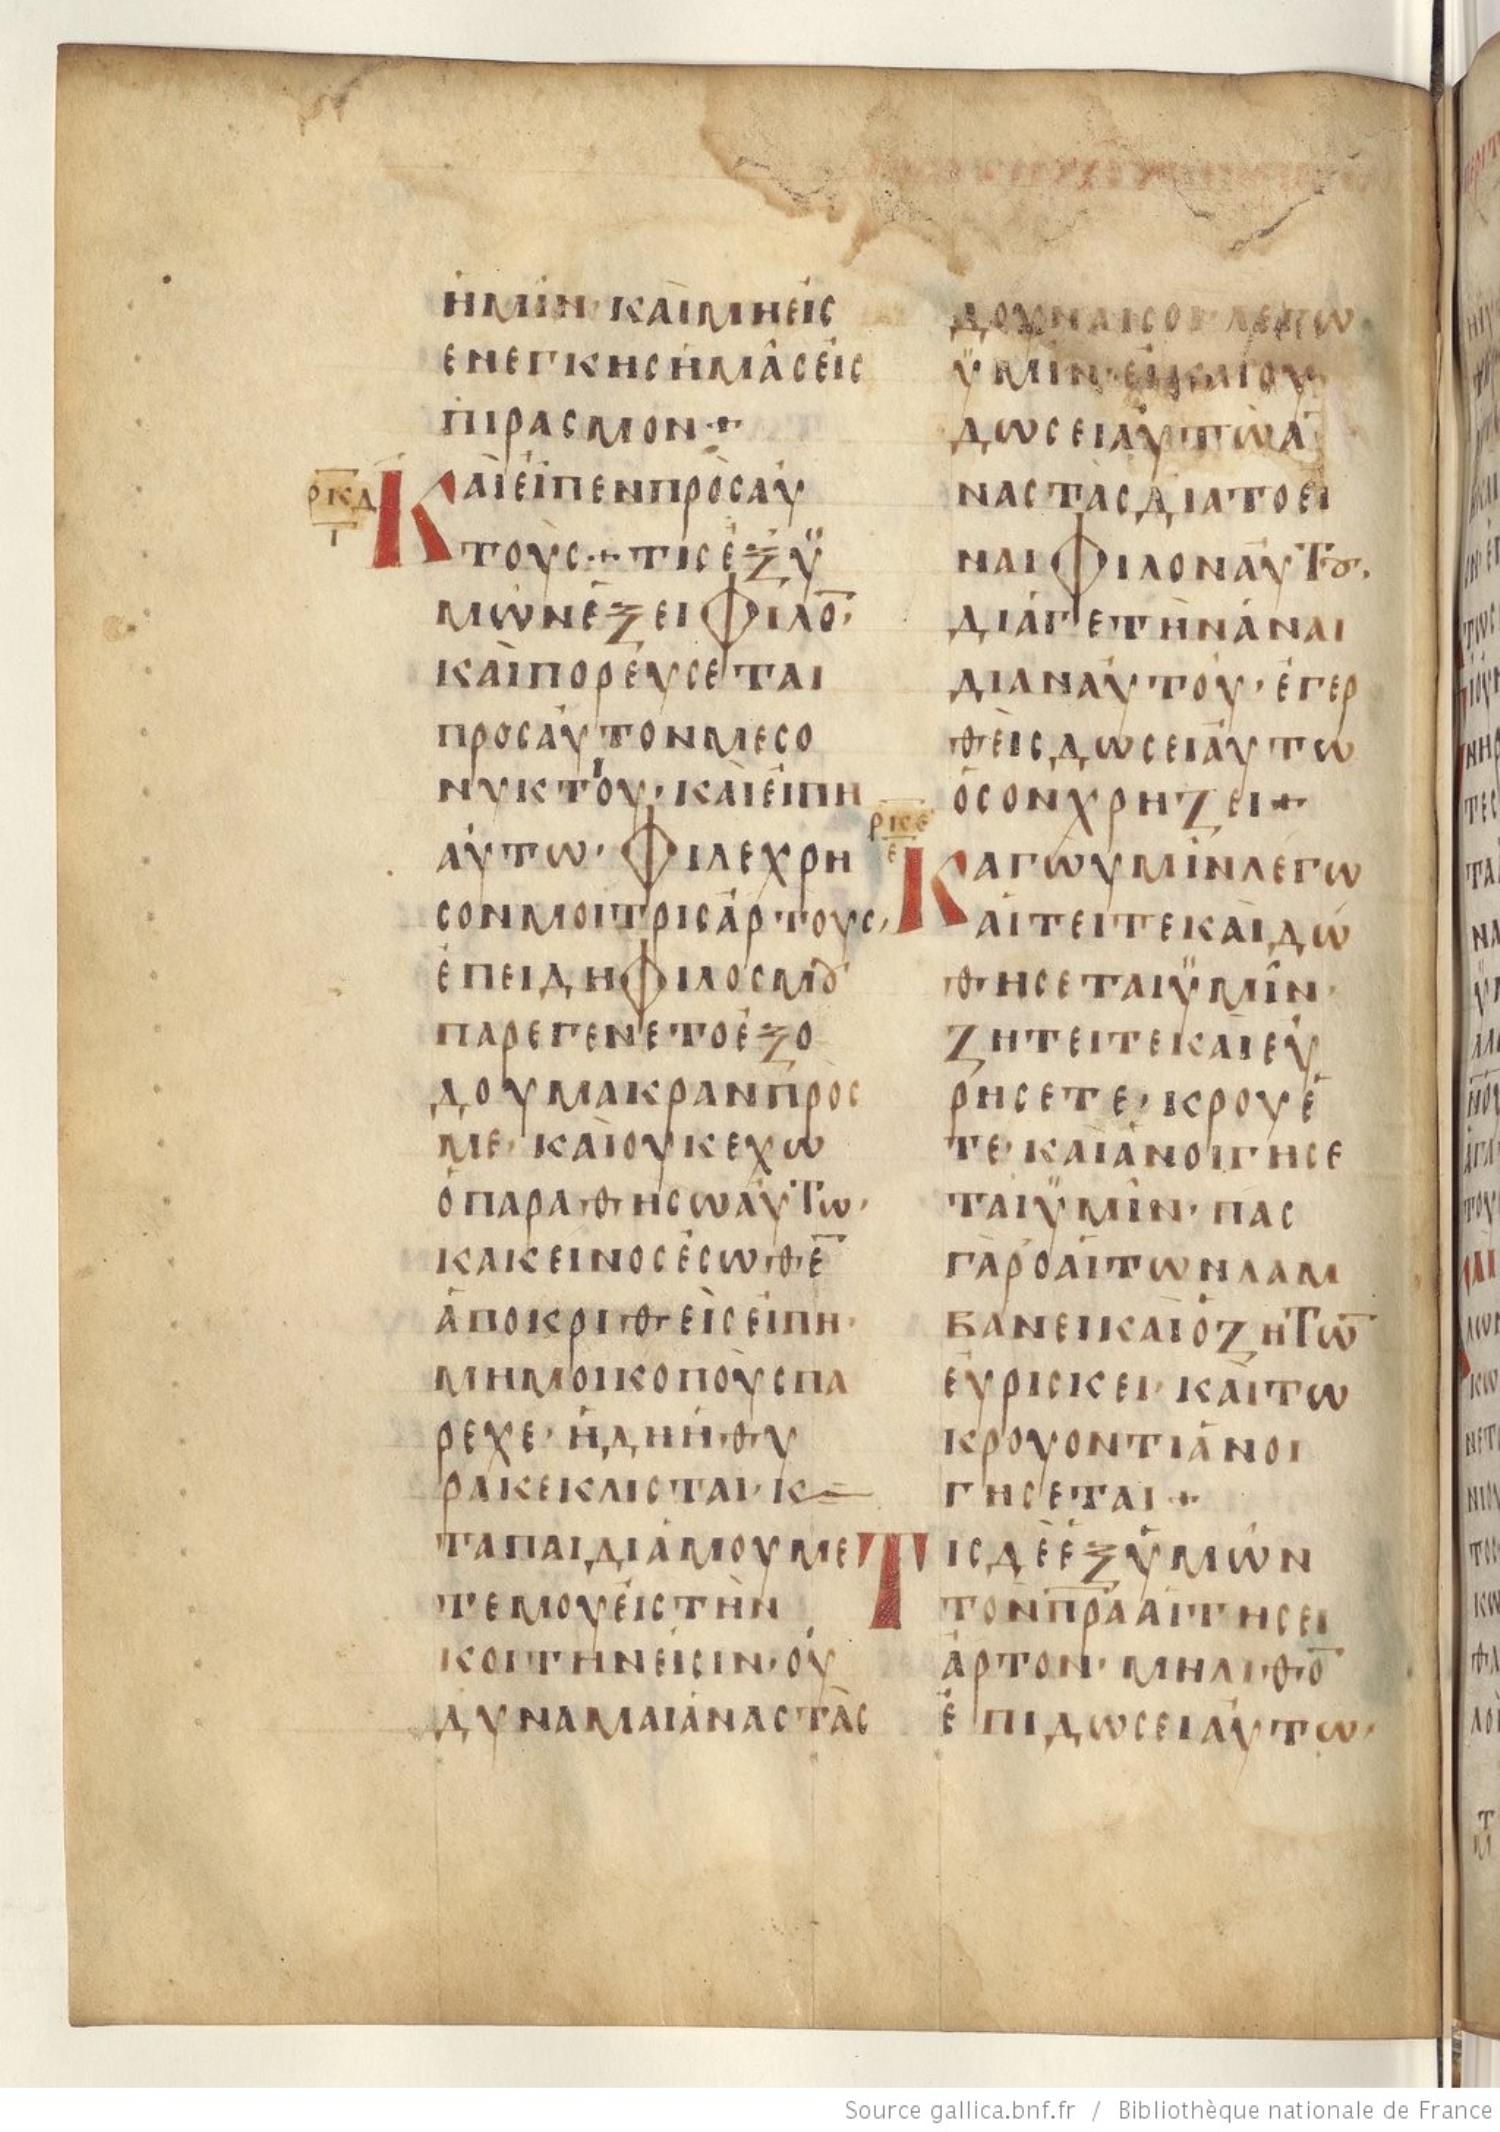 ἡμῖν· καὶ μὴ εἰς
ενεγκης ἡμᾶς εἰς
πιρασμον·+
ρκδ
γ
Καὶ εἶπεν πρὸς αὐ
τοὺς·+ τίς ἐξ ϋ
μῶν ἕξει φιλο̅·
καὶ πορεύσεται
προς αὐτον μεσο
νυκτίου· καὶ εἴπη
αὐτω· φιλε χρη
σον μοι τρις ἄρτους,
ἐπειδη φιλος μȣ
παρεγενετο ἐξ ὁ
δου μακραν πρὸς
με· καὶ ουκ εχω
ὁ παραθησω αὐτω·
κακεινος ἔσωθε̅
ἀποκριθεὶς εἴπη·
μη μοι κοποὺς πα
ρεχε· ἤδη ἡ θυ
ρα κεκλισται· κ
τα παιδία μου με
τ εμου εἰς τὴν
κοιτην εἰσιν· οὐ
δυναμαι ἀναστὰς
δουναι σοι· λεγω
ϋμῖν· εἰ και ου
δωσει αὐτῶ ἀ
ναστὰς διὰ το εἶ
ναι φιλον αὐτȣ·
διά γε τὴν ἀναι
διαν αὐτοῦ· ἐγερ
θεὶς δωσει αὐτω
ὅσον χρηζει·+
ρκε
ε
Καγὼ υμῖν λεγω
αἰτειτε καὶ δω
θησεται ϋμῖν·
ζητειτε καὶ εὑ
ρησετε· κρουε
τε· καὶ ἀνοιγησε
ται ϋμῖν· πας
γὰρ ὁ αἰτων λαμ
βανει καὶ ὁ ζητω̅
εὑρισκει· καὶ τω
κρουοντι ἀνοι
γησεται·+
Τις δὲ ἐξ ὑμῶν
τὸν π̅ρ̅α̅ αἰτησει
ἄρτον· μη λιθο̅
ἐπιδωσει αὐτω·
Source gallica.bnf.fr / Bibliothèque nationale de France